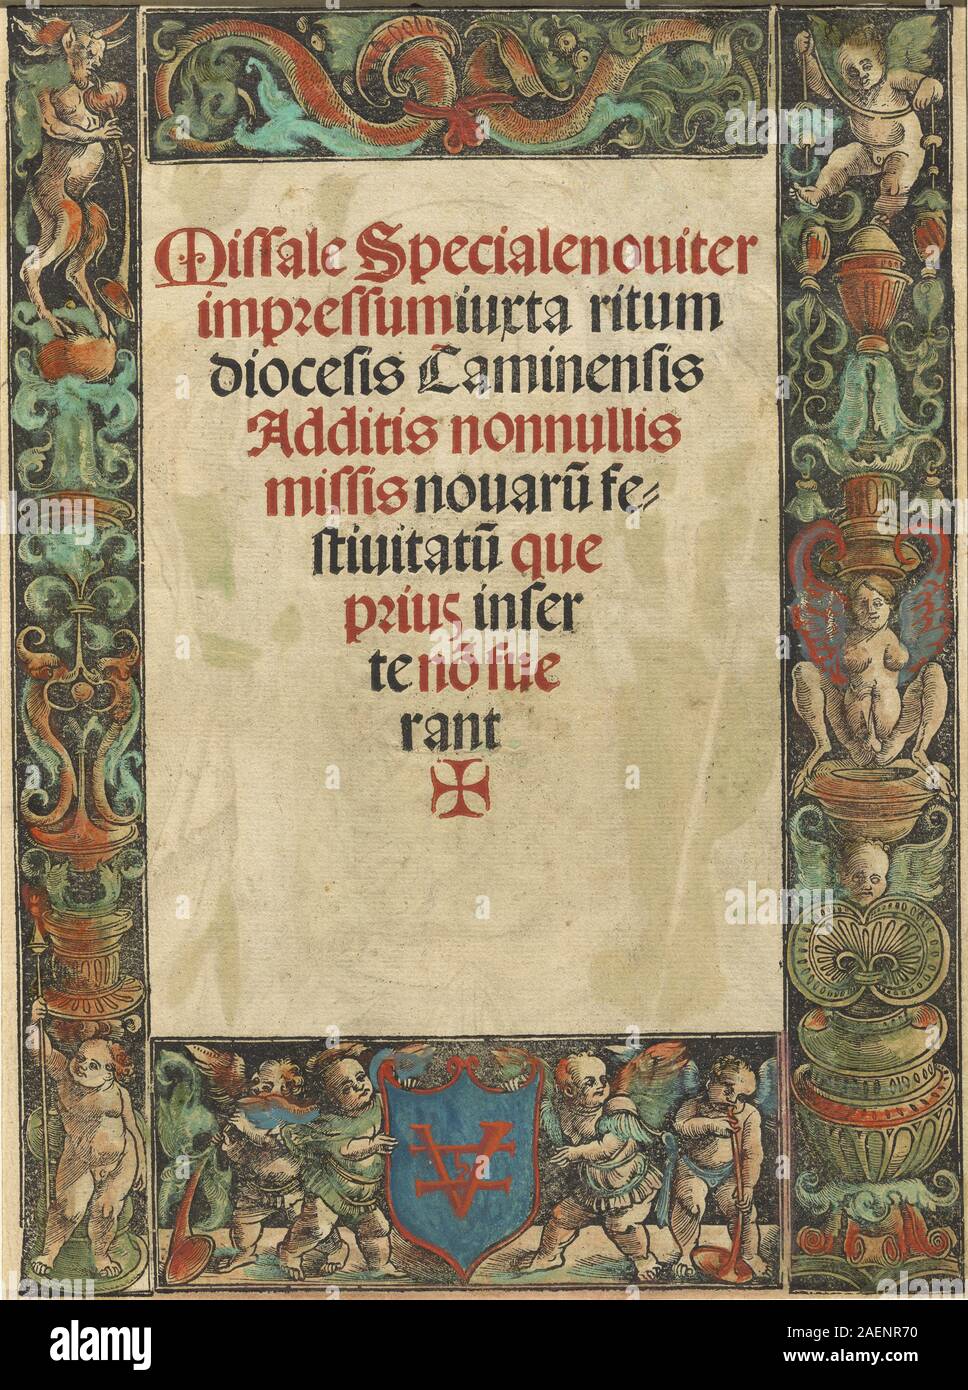 Missale Specialenouiter
impressumiuxta ritum
diocesis Cãminensis
Additis nonnullis
missis nouarũ fe⸗
stiuitatũ que
priuꝫ inser
te nõ fue
rant
alamy
Image ID: 2AENR70
www.alamy.com